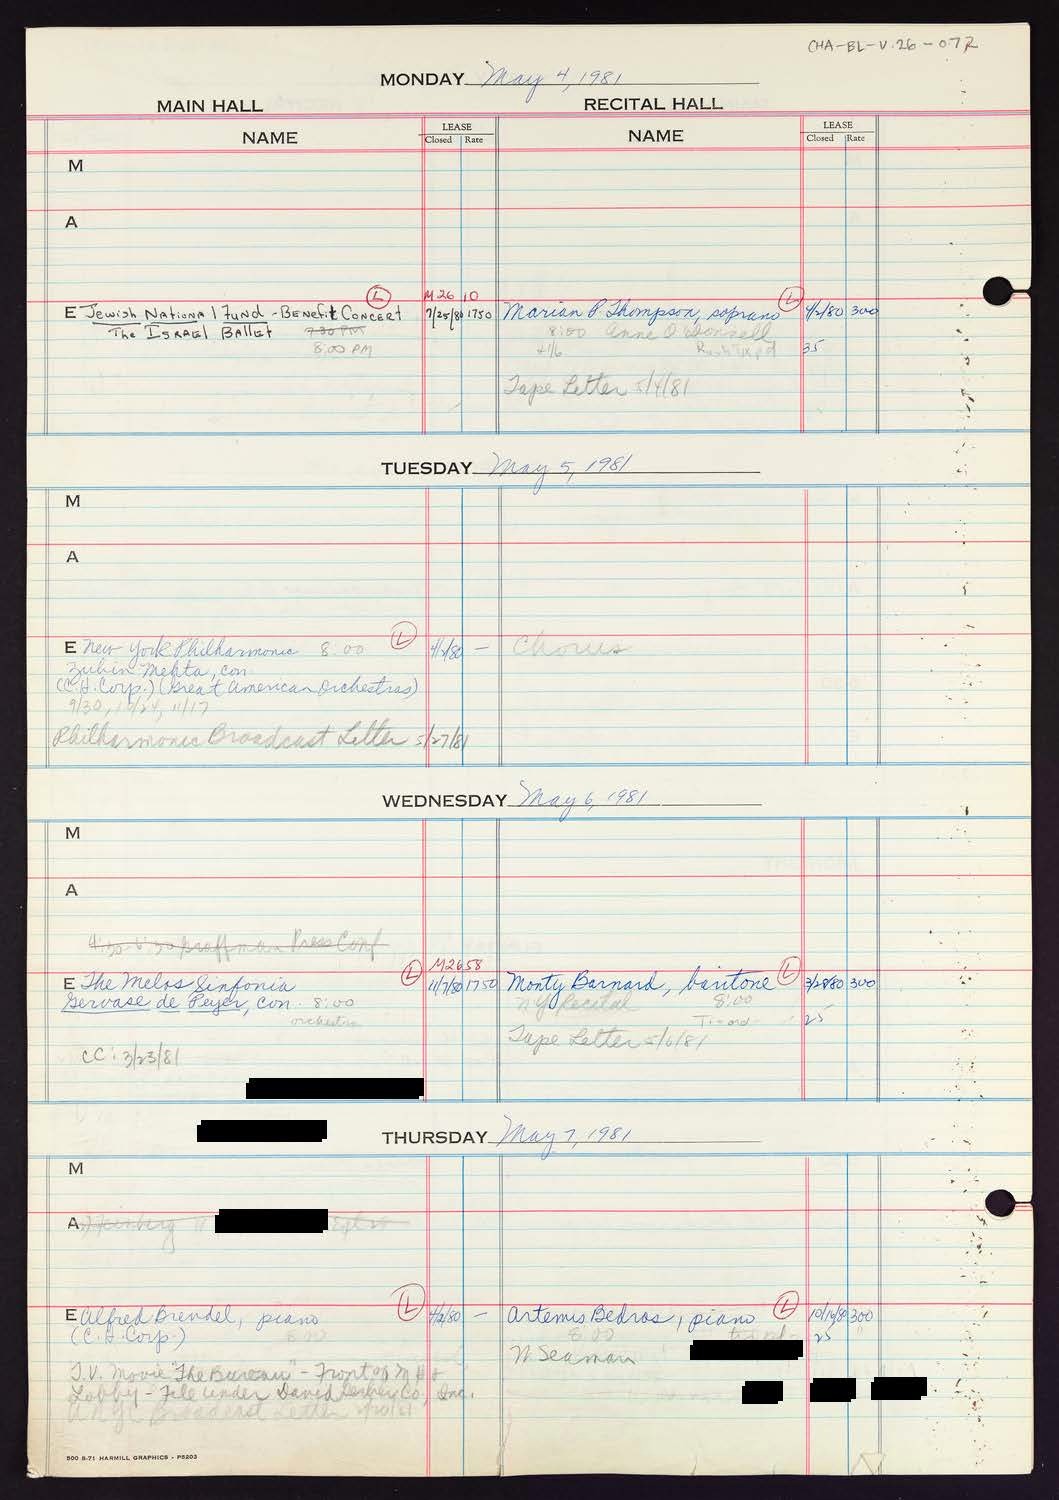 CHA-BL-V.26-072
MONDAY May 4, 1981
MAIN HALL RECITAL HALL
NAME LEASE Closed Rate NAME LEASE Closed Rate
M
A
M26 10
E Jewish National Fund - Benefit Concert L 7/25/80 1750
The Israel Ballet 7:30 PM
8:00 PM
Marian P. Thompson, soprano L 4/2/80 300
8:00 Anne O'Donnell
35
Tape Letter 5/4/81
TUESDAY May 5, 1981
M
A
E New York Philharmonic 8:00 L 4/1/80 —
Zubin Mehta, con.
(C.H. Corp.) (Great American Orchestras)
9/30, 10/24, 11/17
Philharmonic Broadcast Letter 5/27/81
Chorus
WEDNESDAY May 6, 1981
M
A
Press Conf
M2658
E The Melos Sinfonia L 11/7/80 1750
Gervase de Peyer, con. 8:00
orchestra
CC: 3/23/81
Monty Barnard, baritone L 3/28/80 300
NY Recital 8:00
25
Tape Letter 5/6/81
THURSDAY May 7, 1981
M
A
E Alfred Brendel, piano L 4/2/80 —
(C.H. Corp.) 8:00
T.V. Movie "The Bureau" - Front of M H &
Lobby - File under David Gerber Co., Inc.
Broadcast Letter
Artemis Bedros, piano L 10/16/80 300
8:00 25
N Seaman
500 8-71 HARMILL GRAPHICS - P5203